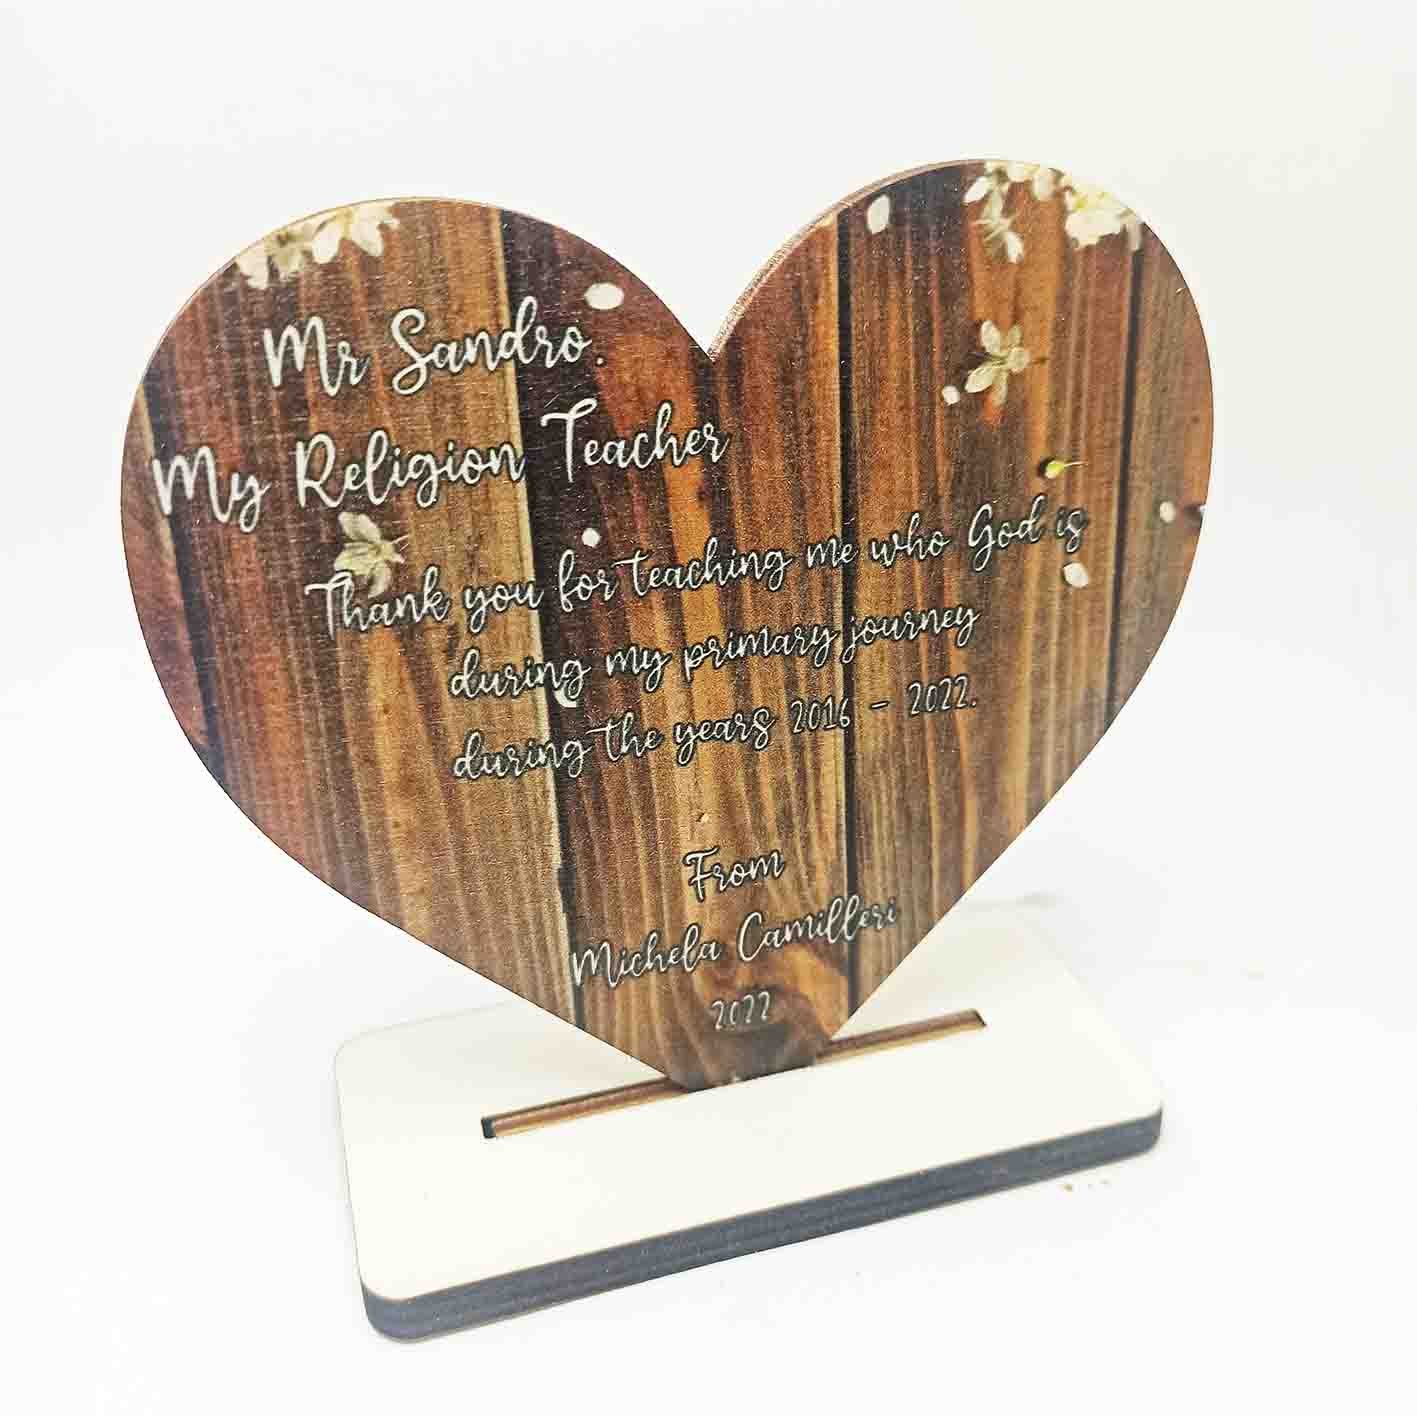 Mr Sandro.
My Religion Teacher
Thank you for teaching me who God is
during my primary journey
during the years 2016 - 2022.
From
Michela Camilleri
2022